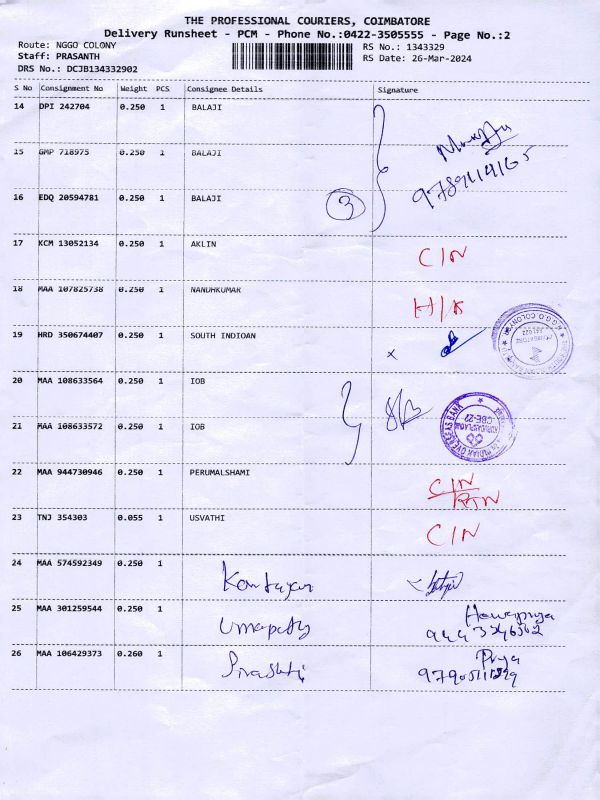 THE PROFESSIONAL COURIERS, COIMBATORE
Delivery Runsheet - PCM - Phone No.:0422-3505555 - Page No.:2
Route: NGGO COLONY RS No.: 1343329
Staff: PRASANTH RS Date: 26-Mar-2024
DRS No.: DCJB134332902
S No Consignment No Weight PCS Consignee Details Signature
14 DPI 242704 0.250 1 BALAJI
15 GMP 718975 0.250 1 BALAJI
9789414165
16 EDQ 20594781 0.250 1 BALAJI 3
17 KCM 13052134 0.250 1 AKLIN C/N
18 MAA 107825738 0.250 1 NANDHKUMAR H/K
19 HRD 350674407 0.250 1 SOUTH INDIOAN x
20 MAA 108633564 0.250 1 IOB
21 MAA 108633572 0.250 1 IOB
INDIAN OVERSEAS BANK
CBE-22
22 MAA 944730946 0.250 1 PERUMALSHAMI C/N
RTN
23 TNJ 354303 0.055 1 USVATHI C/N
24 MAA 574592349 0.250 1
25 MAA 301259544 0.250 1 Umapathy
26 MAA 106429373 0.260 1 Priya